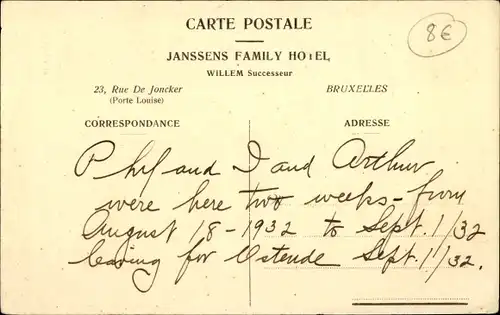 CARTE POSTALE
8€
JANSSENS FAMILY HOTEL
WILLEM Successeur
23, Rue De Joncker BRUXELLES
(Porte Louise)
CORRESPONDANCE ADRESSE
Phyl and I and Arthur
were here two weeks - from
August 18 - 1932 to Sept. 1/32
leaving for Ostende Sept. 1/32.